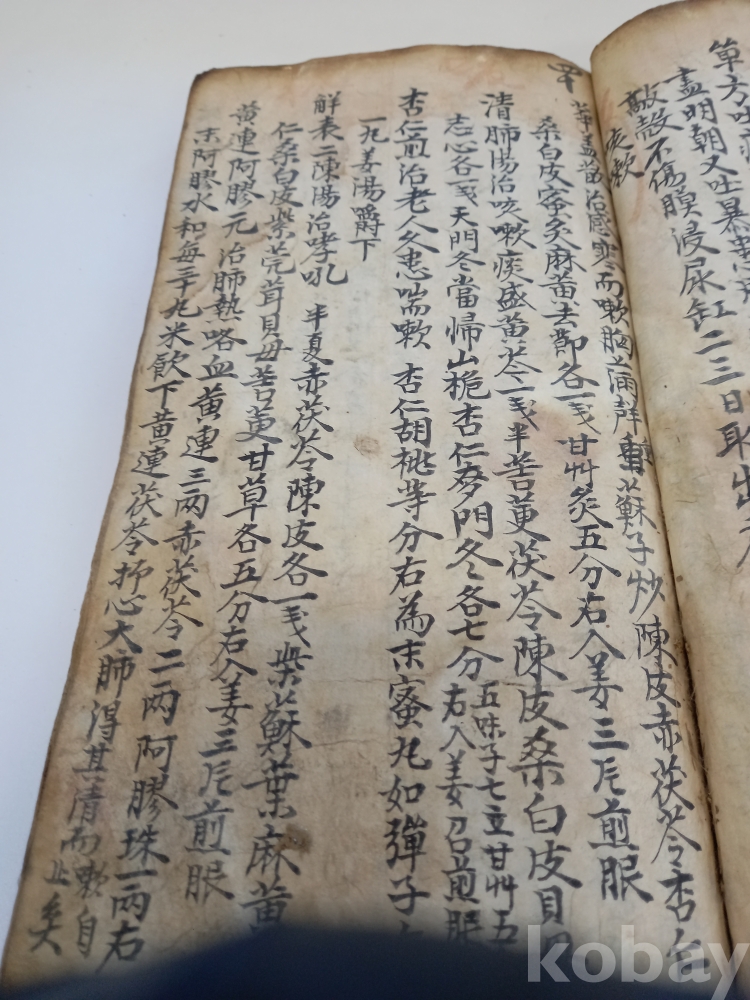 單方吐
盡明朝又吐暴
敲殼不傷膜浸尿缸二三日取出
咳嗽
華盖散治感寒而嗽胸滿聲重蘇子炒陳皮赤茯苓杏仁
桑白皮蜜灸麻黄去節各一戔甘艸炙五分右入姜三片煎眼
清肺湯治咳嗽痰盛黄芩一戔半苦莄茯苓陳皮桑白皮貝
志心各一戔天門冬當帰山梔杏仁麥門冬各七分五味子七立甘艸五
右入姜召煎眼
杏仁煎治老人久患喘嗽 杏仁胡桃等分右為末蜜丸如彈子
一丸姜湯嚼下
解表二陳湯治哮吼 半夏赤茯苓陳皮各一戔紫蘇葉麻黄
仁桑白皮紫莞茸貝母苦莄甘草各五分右入姜三片煎眼
黄連阿膠元治肺熱咯血黄連三两赤茯苓二两阿膠珠一两右
末阿膠水和每三十丸米飲下黄連茯苓抑心火肺得其清而嗽自止矣
kobay